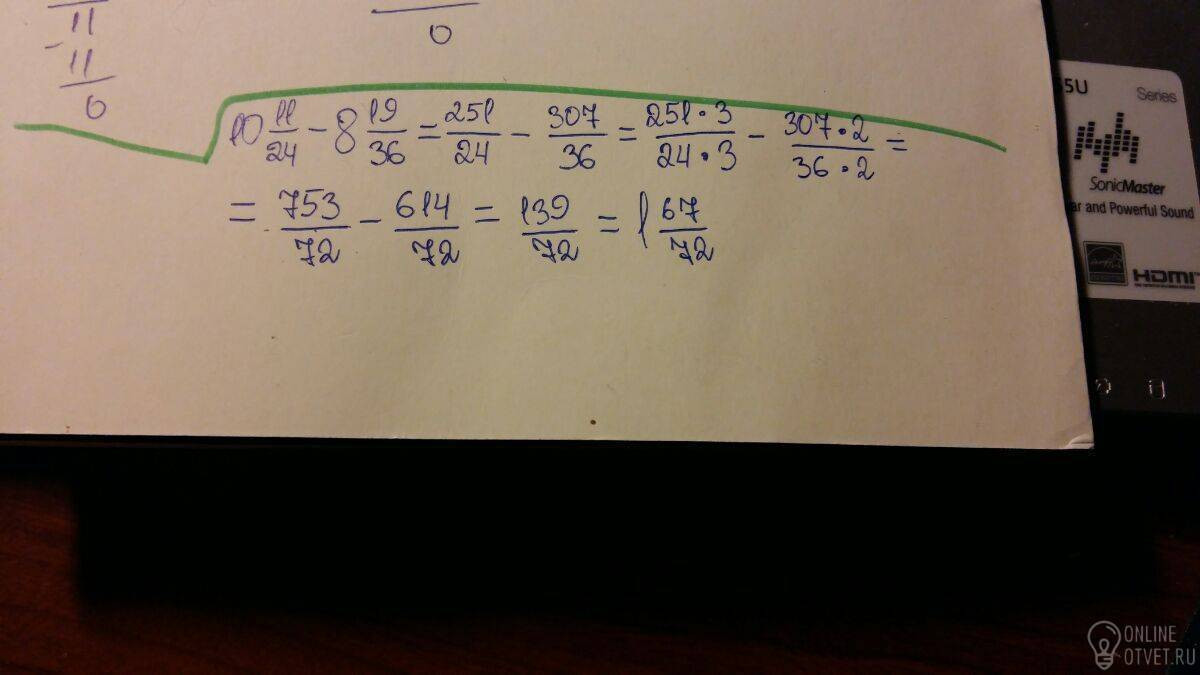 11
0
- 11
0
10 11/24 - 8 19/36 = 251/24 - 307/36 = 251·3/24·3 - 307·2/36·2 =
= 753/72 - 614/72 = 139/72 = 1 67/72
5U
Series
SonicMaster
ar and Powerful Sound
HDMI
ONLINE
OTVET.RU